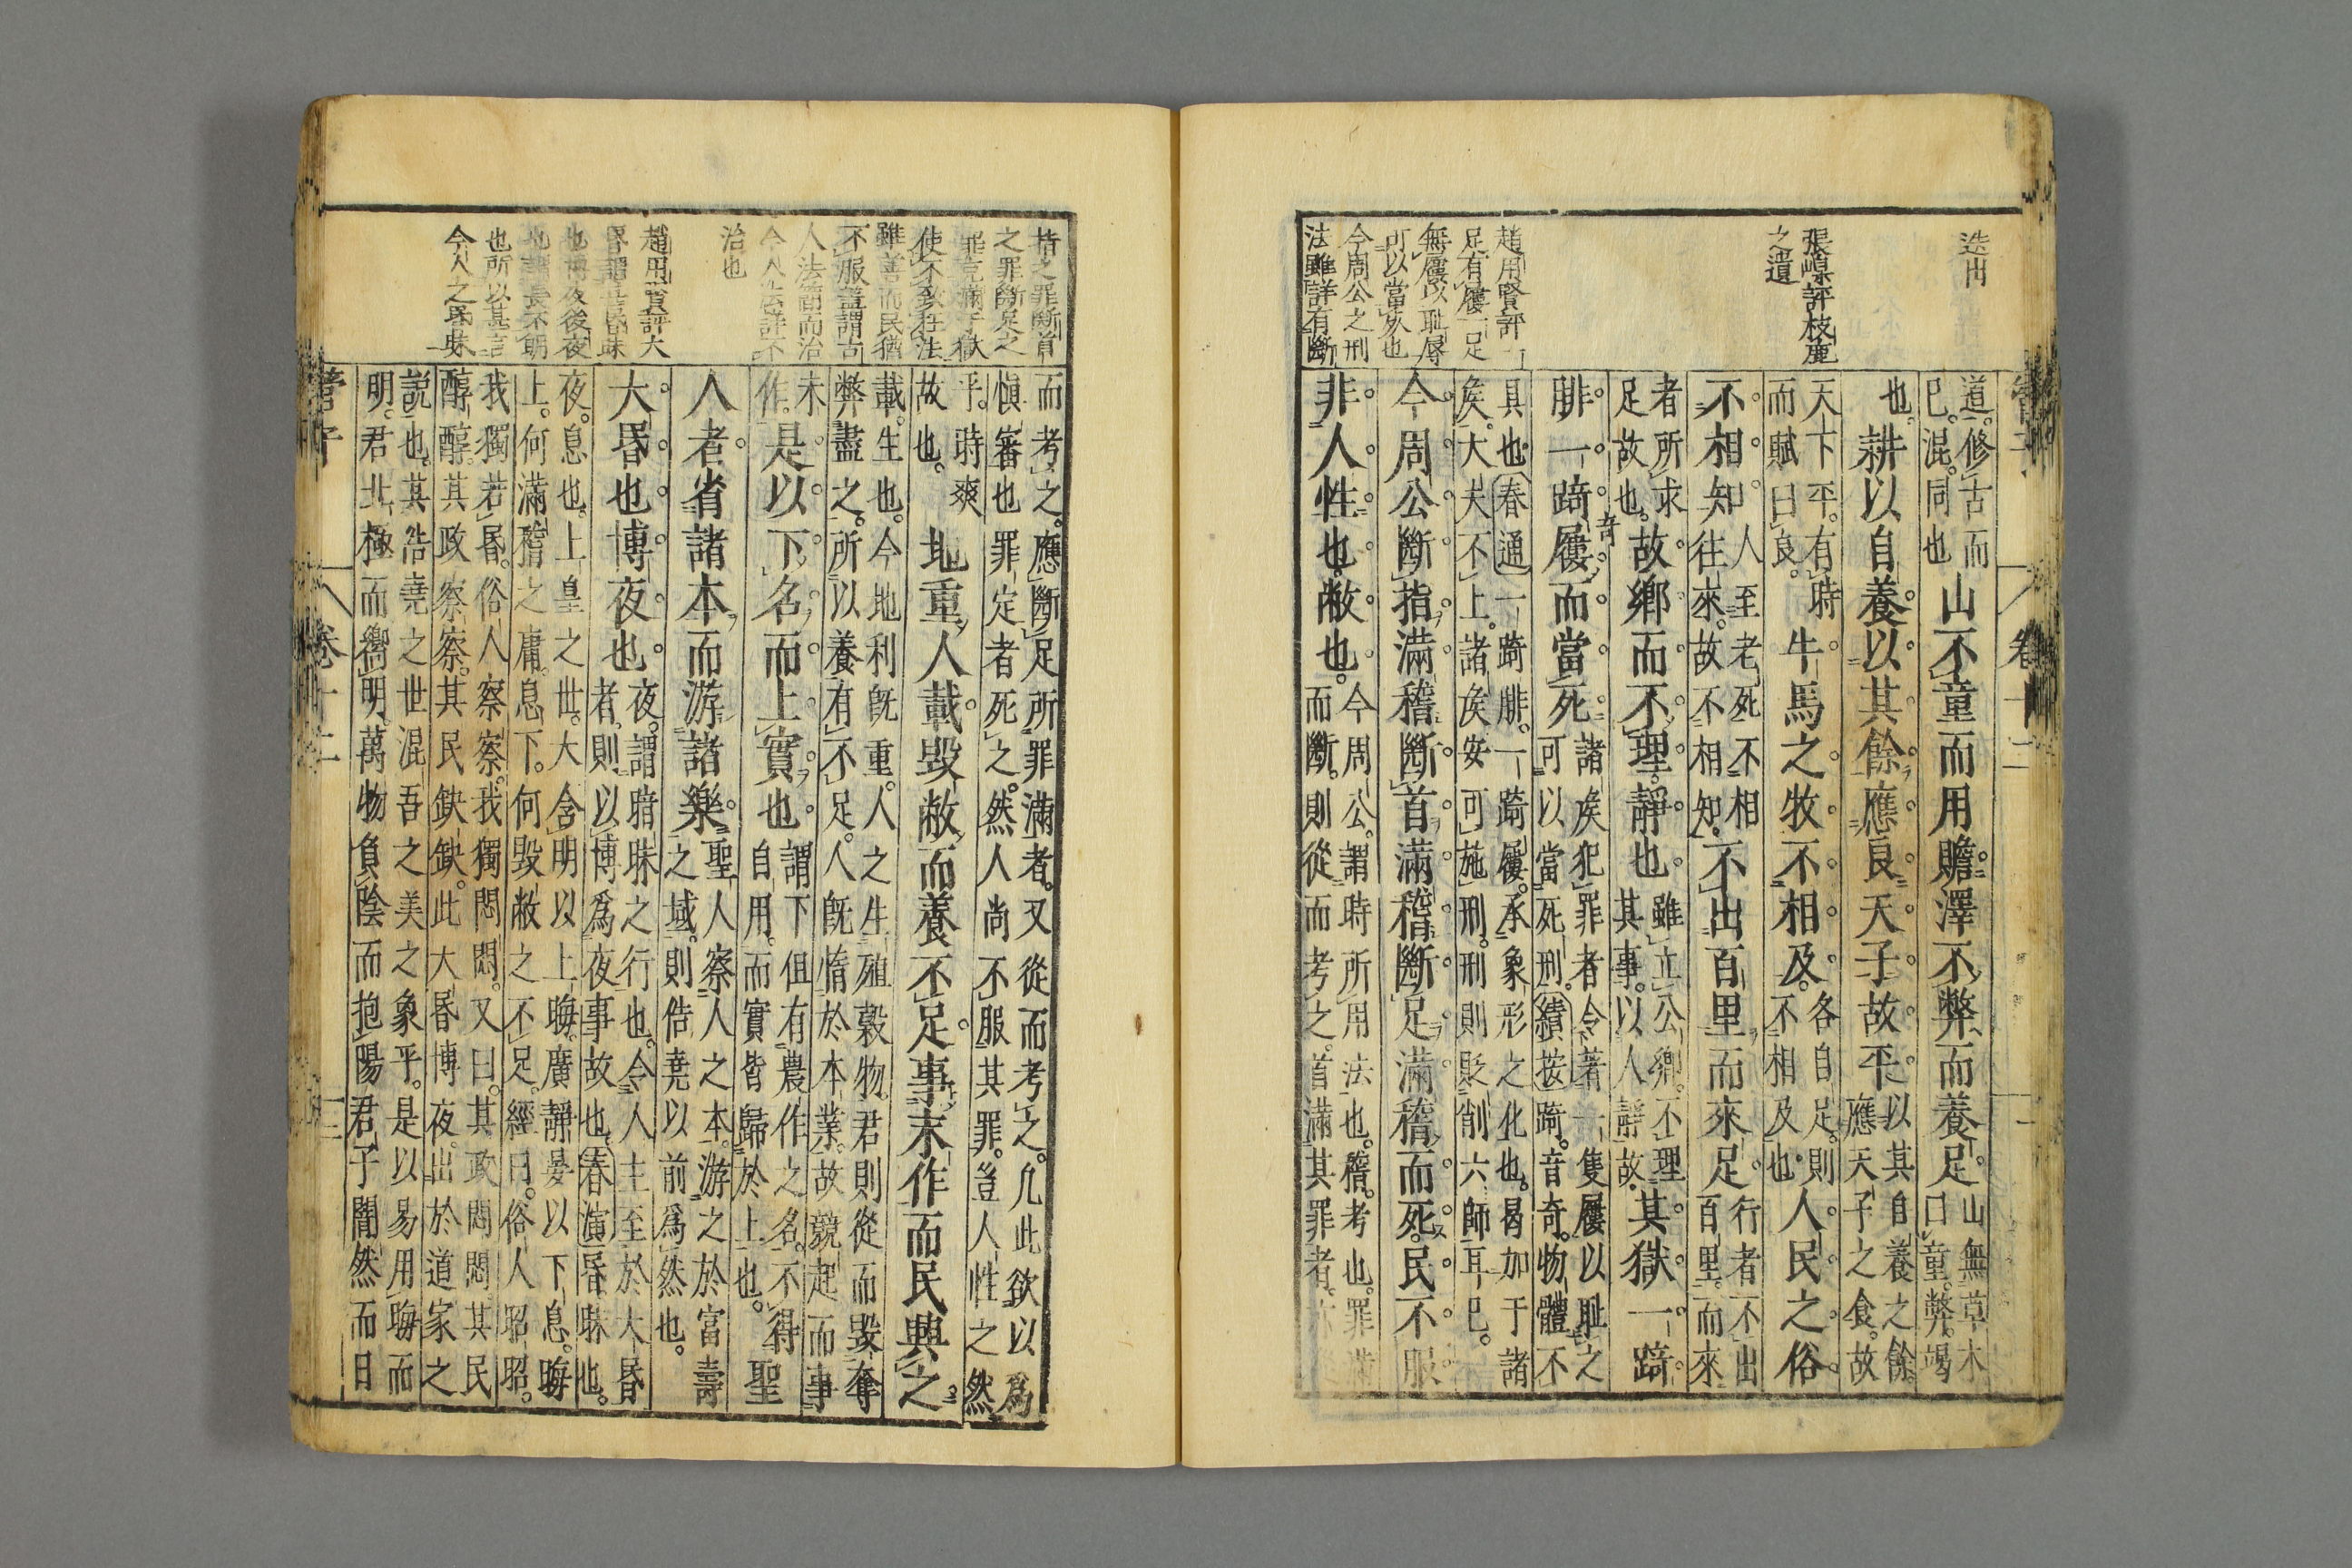 造出
張嵲評枝鹿
之遺
趙用賢評一
足有屨一足
無屨以恥辱
可以當死也
今周公之刑
法雖詳有斷
道修古而
已混同也
山不童而用贍澤不弊而養足
山無草木
曰童弊竭
也
耕以自養以其餘應良天子故平
以其自養之餘
應天子之食故
天下平有時
而賦曰良
牛馬之牧不相及
各自足則
不相及也
人民之俗
不相知
人至老死不相
往來故不相知
不出百里而來足
行者不出
百里而來
者所求
足故也
故鄉而不理靜也
雖立公鄉不理
其事以人靜故
其獄一踦
腓一踦屨而當死
諸侯犯罪者令著一隻屨以恥之
可以當死刑續按踦音奇物體不
具也春通一踦腓一踦屨承象形之化也曷加于諸
侯大夫不上諸侯安可施刑刑則貶削六師耳已
今周公斷指滿稽斷首滿稽斷足滿稽而死民不服
非人性也敝也
今周公謂時所用法也稽考也罪滿
而斷則從而考之首滿其罪者亦
指之罪斷首
之罪斷足之
罪充滿于獄
使不敢狂法
雖善而民猶
不服蓋謂古
人法簡而治
今人法詳不
治也
趙用賢評大
昏謂昏昧
也博夜後夜
也謂長不明
也所以甚言
今人之愚昧
而考之應斷足所罪滿者又從而考之凡此欲以爲
愼審也罪定者死之然人尚不服其罪豈人性之然
乎蒔爽
故也
地重人載毀敝而養不足事末作而民興之
載生也今地利旣重人之生殖穀物君則從而毀奪
弊盡之所以養有不足人旣惰於本業故競起而事
末
作
是以下名而上實也
謂下但有農作之名不得
自用而實皆歸於上也
聖
人者省諸本而游諸樂
聖人察人之本游之於富壽
之域則俈堯以前爲然也
大昏也博夜也
夜謂暗昧之行也今人主至於大昏
者則以博爲夜事故也春演昏昧也
夜息也上皇之世大含明以上晦廣靜晏以下息晦
上何滿稽之庸息下何毀敝之不足經曰俗人昭昭
我獨若昏俗人察察我獨悶悶又曰其政悶悶其民
醇醇其政察察其民缺缺此大昏博夜出於道家之
說也其俈堯之世混吾之美之象乎是以易用晦而
明君北極而嚮明萬物負陰而抱陽君子闇然而日
管子
卷十二